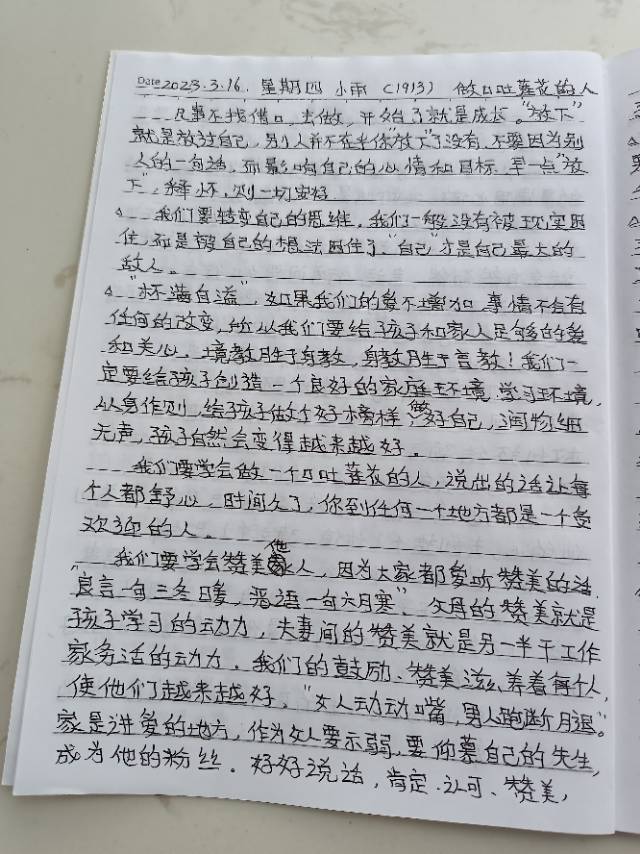 Date 2023.3.16. 星期四 小雨 (1913) 做口吐莲花的人
凡事不找借口,去做,开始了就是成长。"放下"
就是放过自己,别人并不在乎你"放下"了没有,不要因为别
人的一句话,而影响自己的心情和目标,早一点"放
下",释怀,则一切安好
我们要转变自己的思维,我们一般没有被现实困
住,而是被自己的想法困住了,"自己"才是自己最大的
敌人。
"杯满自溢",如果我们的爱不增加,事情不会有
任何的改变,所以我们要给孩子和家人足够的爱
和关心。境教胜于身教,身教胜于言教!我们一
定要给孩子创造一个良好的家庭环境,学习环境,
以身作则,给孩子做个好榜样,做好自己,润物细
无声,孩子自然会变得越来越好。
我们要学会做一个口吐莲花的人,说出的话让每
个人都舒心,时间久了,你到任何一个地方都是一个受
欢迎的人。
我们要学会赞美他人,因为大家都爱听赞美的话,
"良言一句三冬暖,恶语一句六月寒",父母的赞美就是
孩子学习的动力,夫妻间的赞美就是另一半干工作
家务活的动力。我们的鼓励、赞美滋养着每个人,
使他们越来越好,"女人动动嘴,男人跑断腿"。
家是讲爱的地方,作为女人要示弱,要仰慕自己的先生,
成为他的粉丝。好好说话,肯定、认可、赞美,